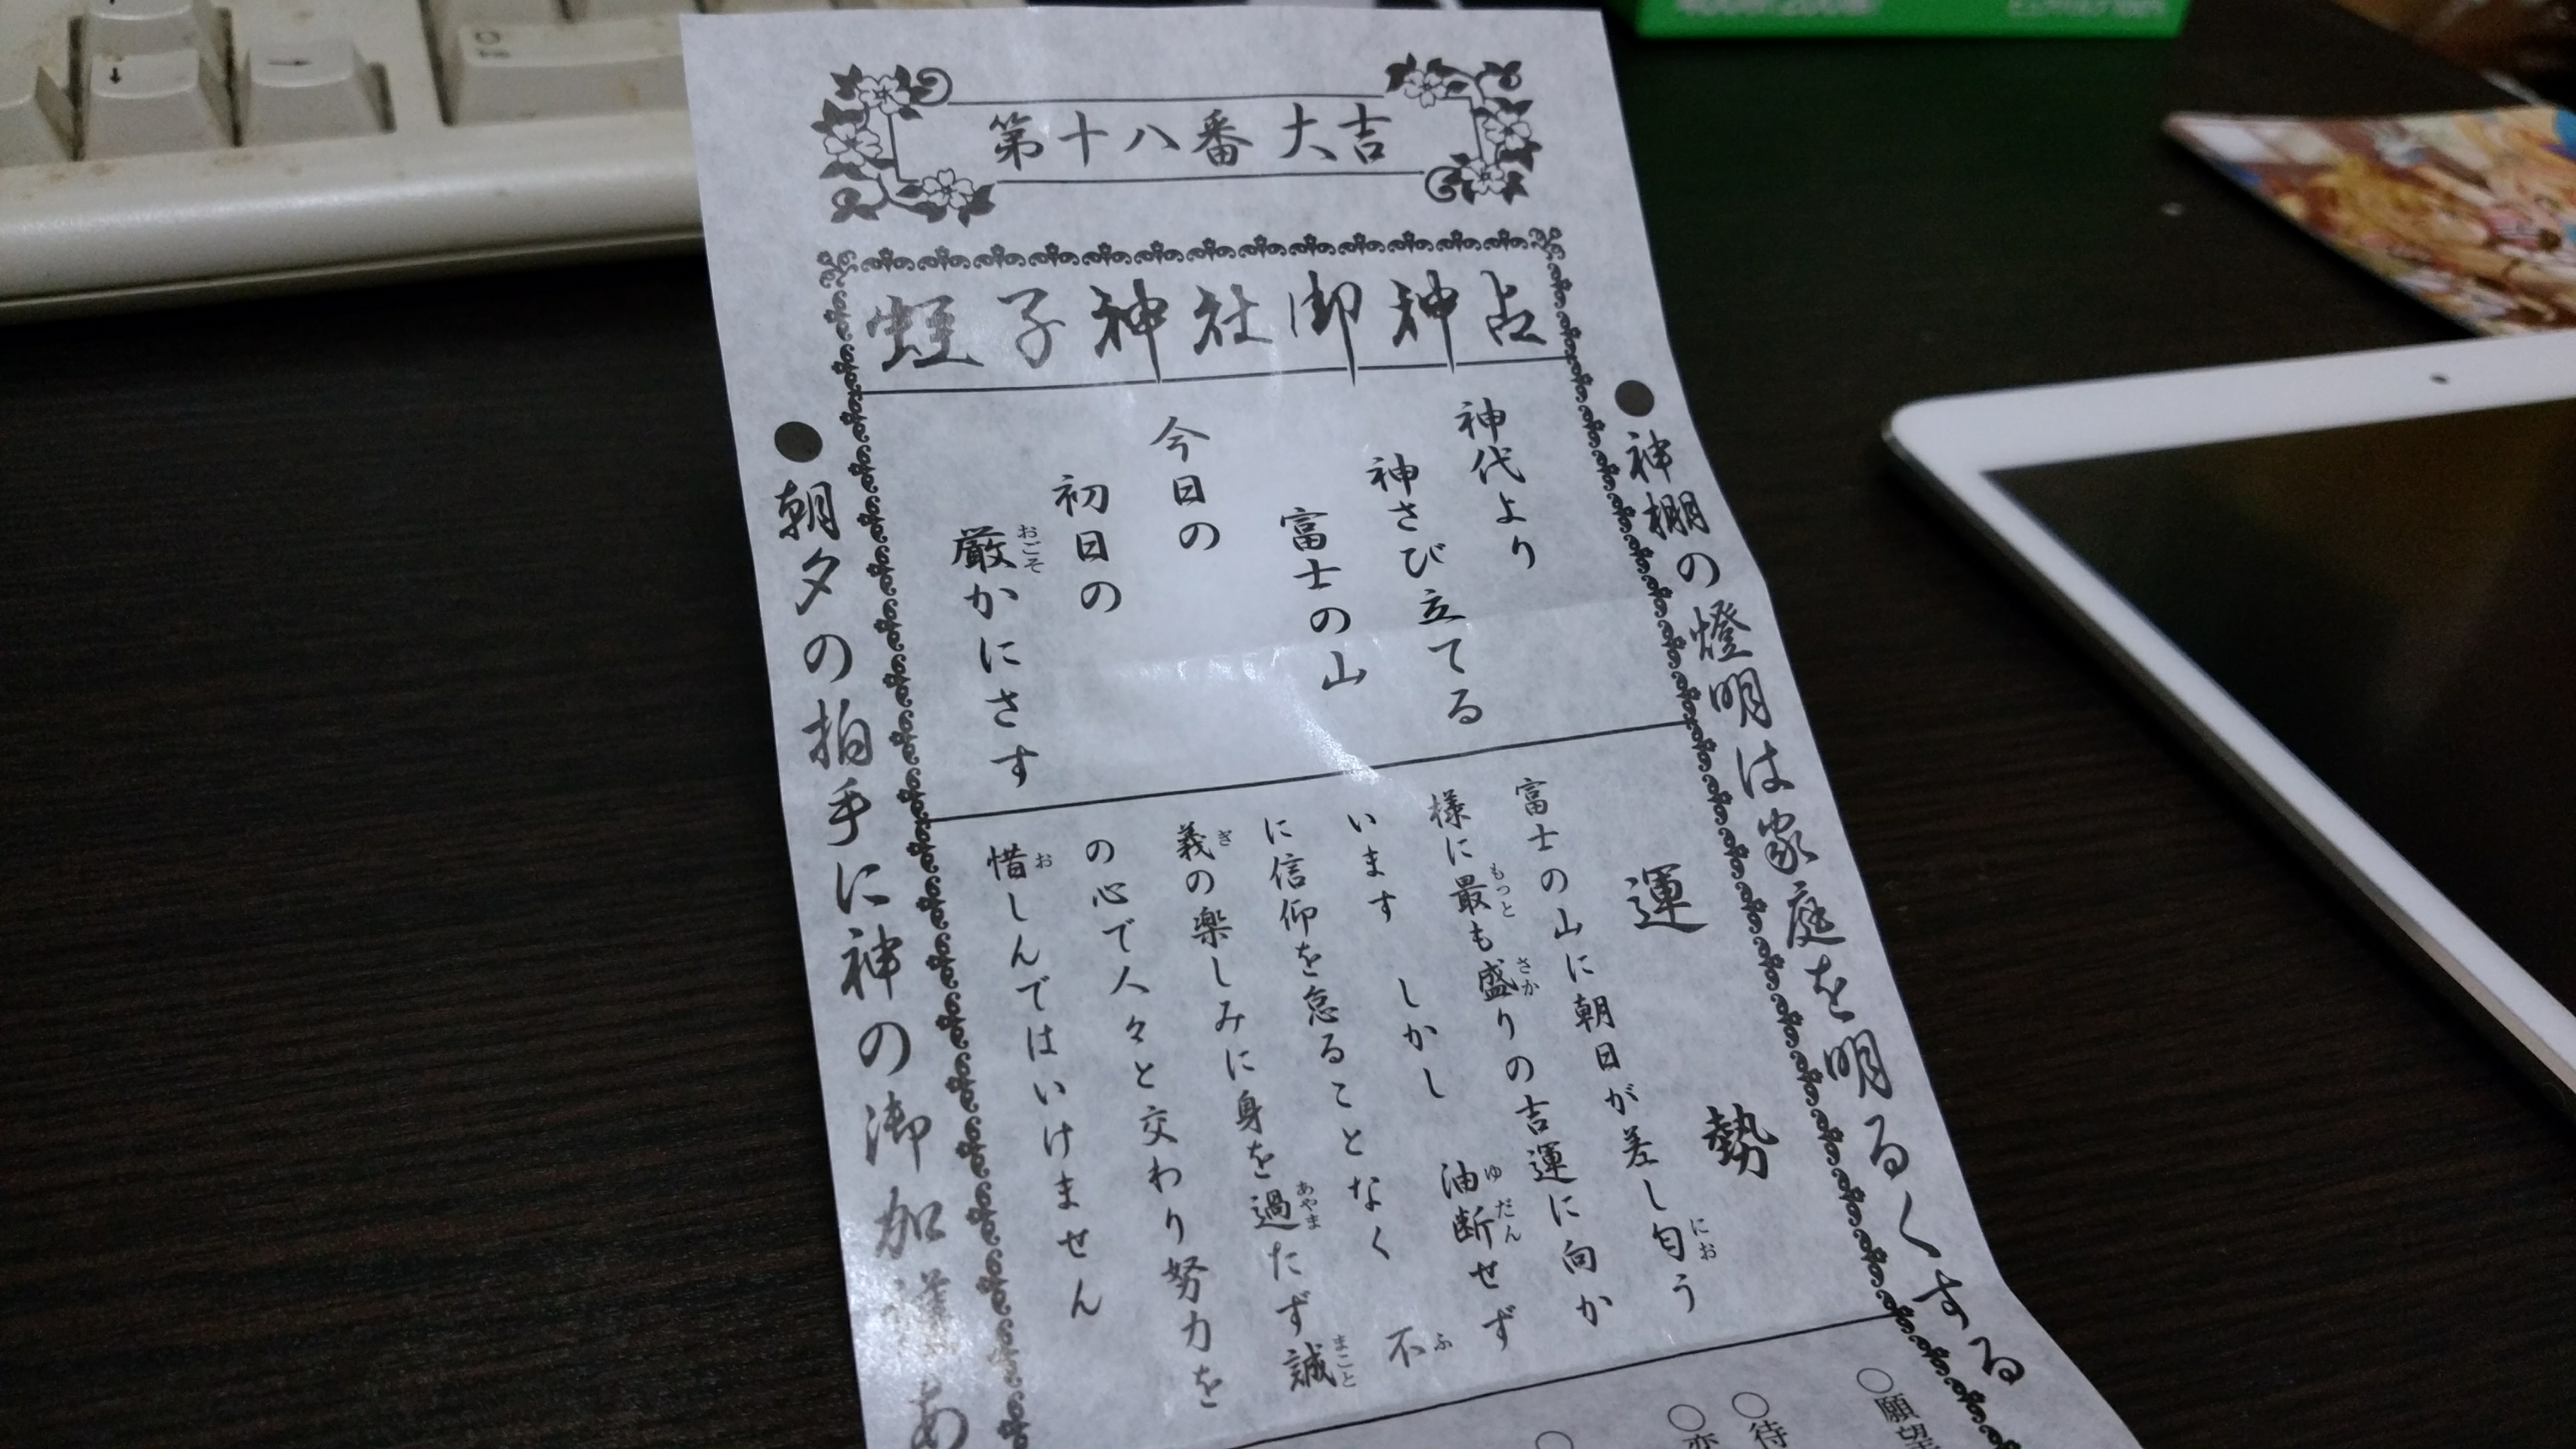 第十八番 大吉
蛭子神社御神占
●神棚の燈明は家庭を明るくする
神代より
神さび立てる
富士の山
今日の
初日の
厳かにさす
おごそ
運勢
富士の山に朝日が差し匂う
にお
様に最も盛りの吉運に向か
もっと さか
います しかし 油断せず
ゆだん
に信仰を怠ることなく 不
ふ
義の楽しみに身を過たず誠
ぎ あやま まこと
の心で人々と交わり努力を
惜しんではいけません
お
●朝夕の拍手に神の御加護あ
○願望
○待
○
○